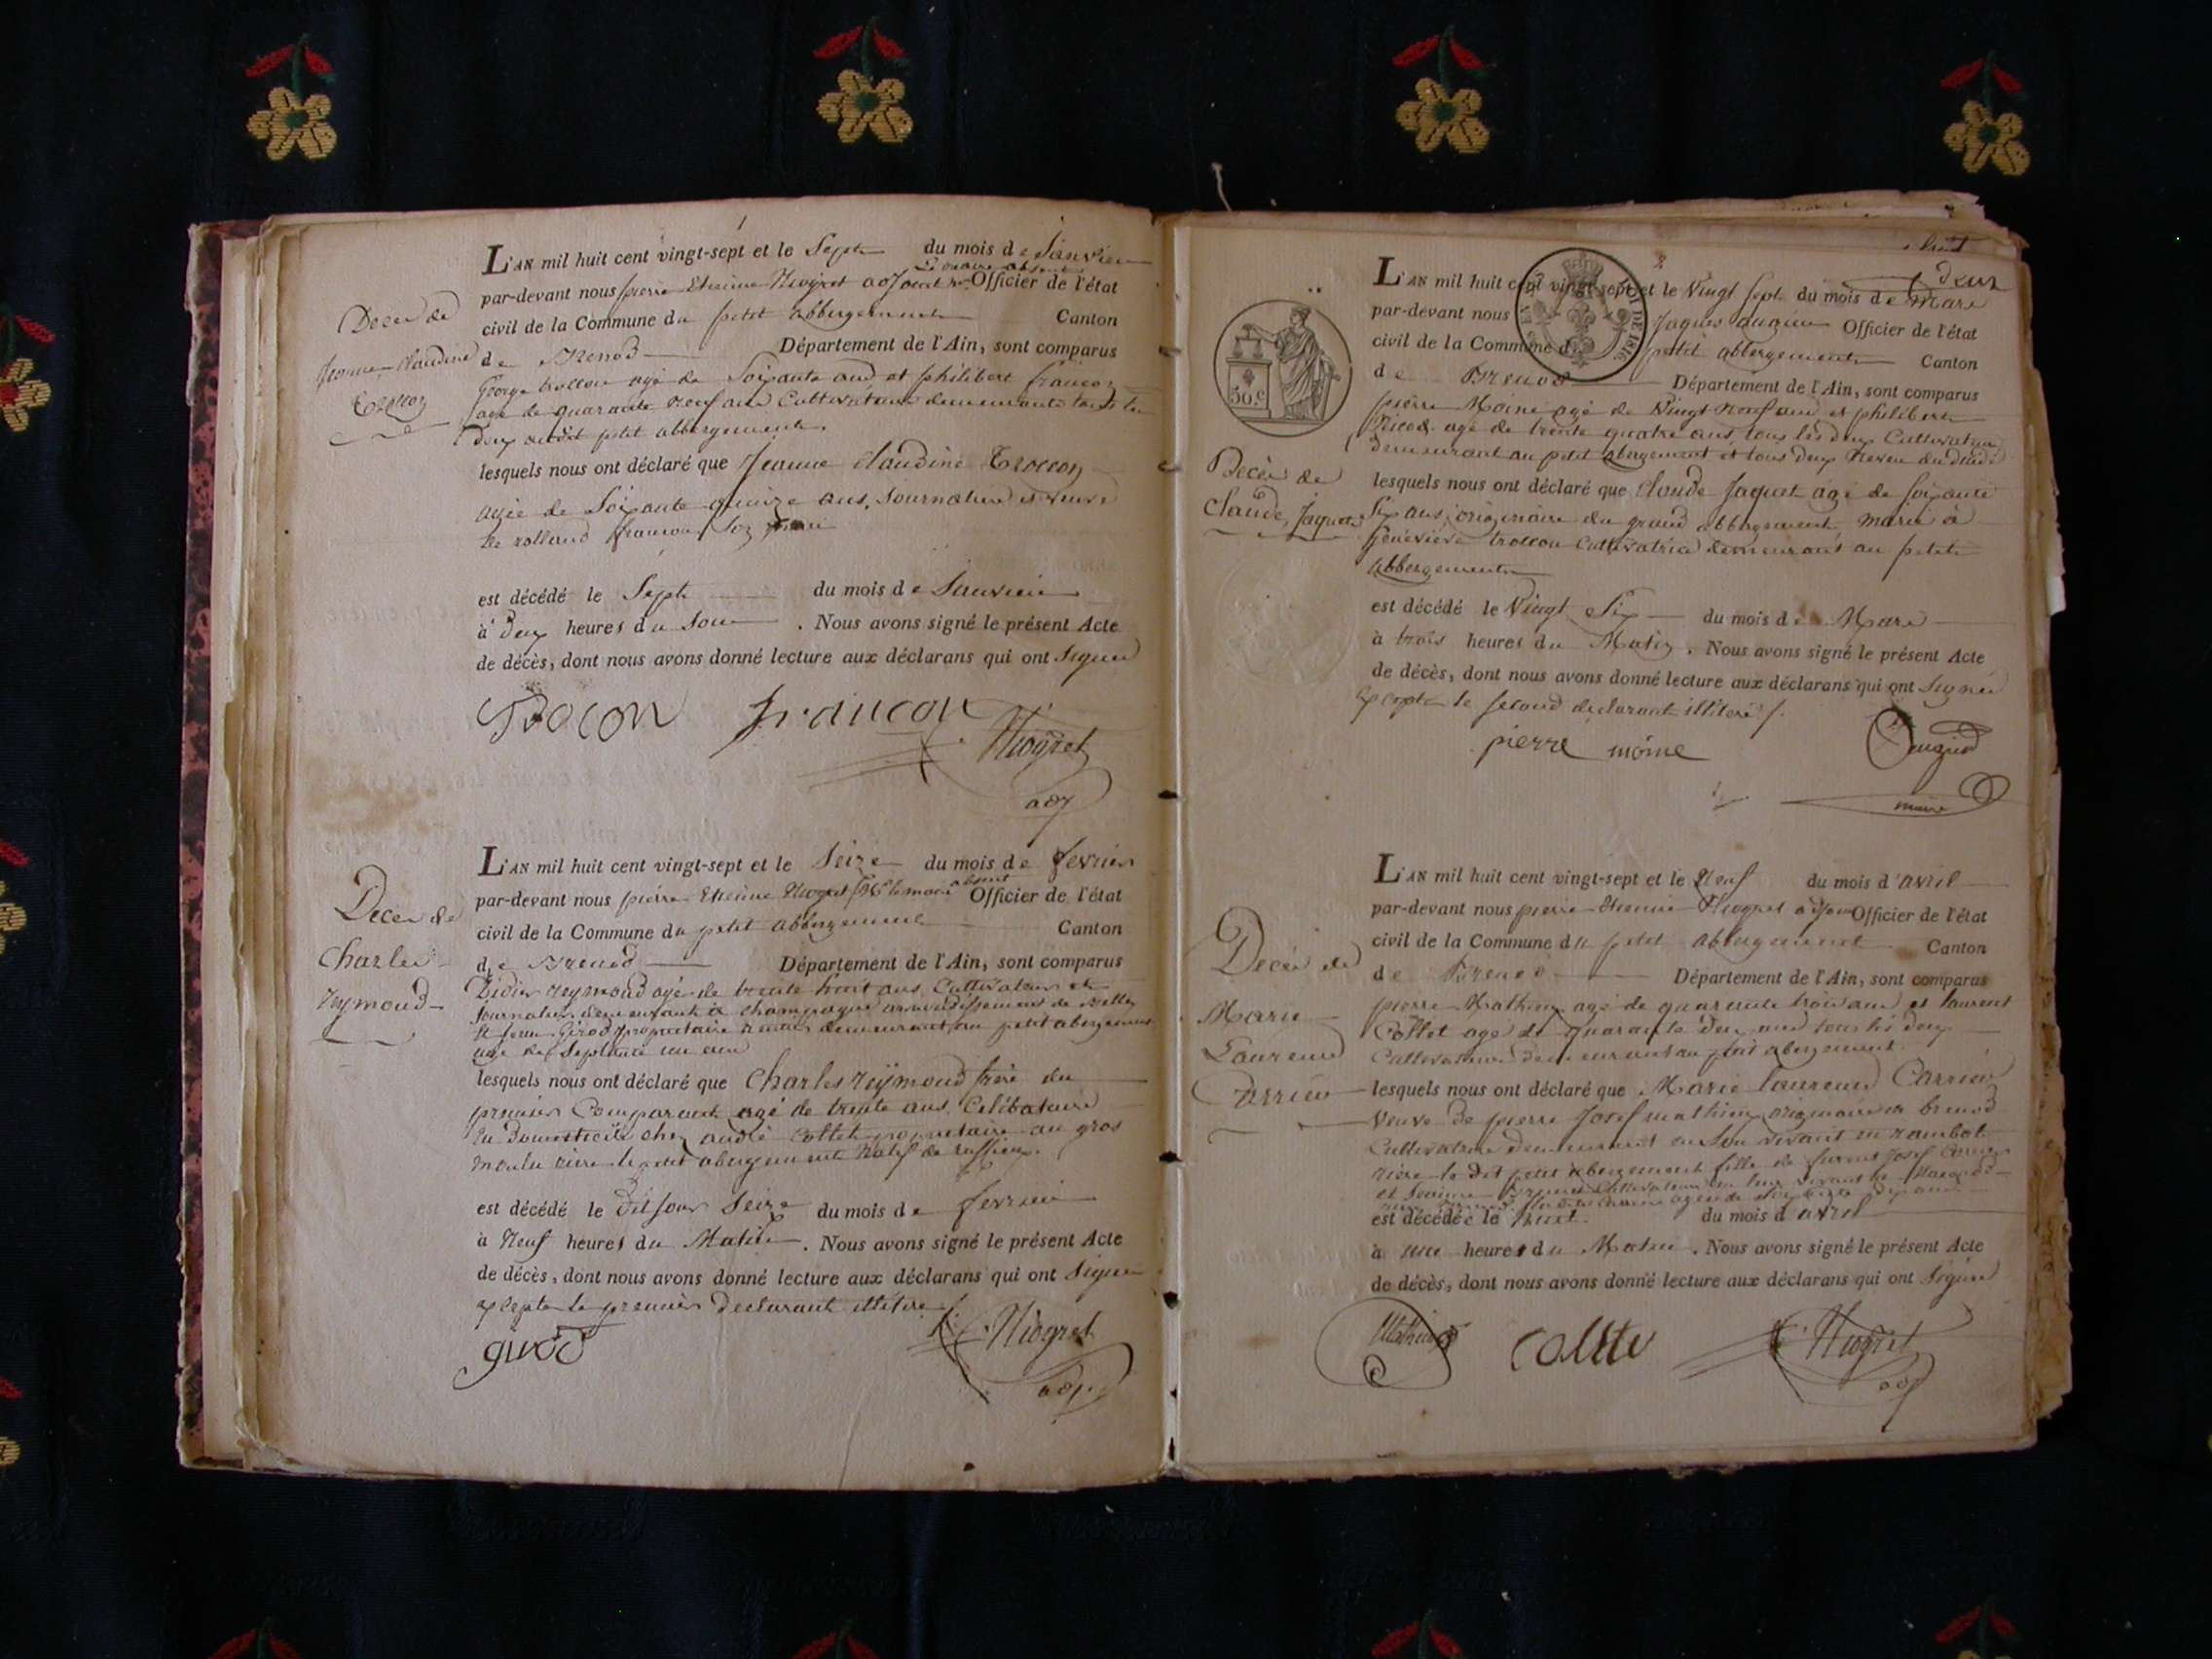 1
L'AN mil huit cent vingt-sept et le Sept du mois de Janvier
Le maire absent
par-devant nous pierre Etienne Niogret adjoint Officier de l'état
civil de la Commune du petit abbergement Canton
de Brenod Département de l'Ain, sont comparus
George trollon agé de Soixante ans et philibert francon
agé de quarante neuf ans Cultivateurs demeurants tous les
deux audit petit abbergement.
Decès de
Jeanne Claudine
Trocon
lesquels nous ont déclaré que Jeanne Claudine Troccon
agée de Soixante quinze ans, Journalière et veuve
de rolland francon Son mari
est décédé le Sept du mois de Janvier
à deux heures du Soir. Nous avons signé le présent Acte
de décès, dont nous avons donné lecture aux déclarans qui ont Signés
Trocon francon
Niogret
adj
L'AN mil huit cent vingt-sept et le Seize du mois de fevrier
absent
par-devant nous pierre Etienne Niogret le maire Officier de l'état
civil de la Commune du petit abbergement Canton
de Brenod Département de l'Ain, sont comparus
Didier reymond agé de trente huit ans Cultivateur et
Journalier demeurant à champagne arrondissement de Belley
et Jean Girod propriétaire rentier demeurant au petit abergement
agé de Septante un ans
Decès de
Charles
reymond
lesquels nous ont déclaré que Charles reymond frère du
premier Comparant agé de trente ans Celibataire
en domesticité chez andré Collet propriétaire au gros
moulin rière le petit abergement Natif de ruffieu.
est décédé le Dit jour Seize du mois de fevrier
à Neuf heures du Matin. Nous avons signé le présent Acte
de décès, dont nous avons donné lecture aux déclarans qui ont Signé
excepté le premier declarant illitéré
girod
Niogret
adj
2
huit
deux
L'AN mil huit cent vingt-sept et le Vingt Sept du mois de Mars
par-devant nous Jaques augier Officier de l'état
civil de la Commune du petit abbergement Canton
de Brenod Département de l'Ain, sont comparus
pierre Moine agé de Vingt Neuf ans et philibert
Nicod agé de trente quatre ans tous les deux Cultivateurs
demeurant au petit abergement et tous deux Neveu du décédé
50 c
Decès de
Claude Jaquet
lesquels nous ont déclaré que Claude Jaquet agé de Soixante
Six ans, originaire du grand abbergement marié à
Genevieve trocon Cultivatrice demeurant au petit
abbergement
est décédé le Vingt Six du mois de Mars
à trois heures du Matin. Nous avons signé le présent Acte
de décès, dont nous avons donné lecture aux déclarans qui ont Signés
excepté le Second declarant illiteré
pierre moine
augier
maire
L'AN mil huit cent vingt-sept et le Neuf du mois d'avril
par-devant nous pierre Etienne Niogret adjoint Officier de l'état
civil de la Commune du petit abbergement Canton
de Brenod Département de l'Ain, sont comparus
pierre Mathieu agé de quarante trois ans et laurent
Collet agé de quarante deux ans tous les deux
Cultivateurs demeurant au petit abergement.
Decès de
Marie
Laurence
Carrier
lesquels nous ont déclaré que Marie laurence Carrier
veuve de pierre Josef mathieu originaire de brenod
Cultivatrice demeurant en Son vivant en rambot
rière le dit petit abergement fille de Josef Carrier
est décédée le huit du mois d avril
à une heures du Matin. Nous avons signé le présent Acte
de décès, dont nous avons donné lecture aux déclarans qui ont Signés
Mathieu Collet
Niogret
adj